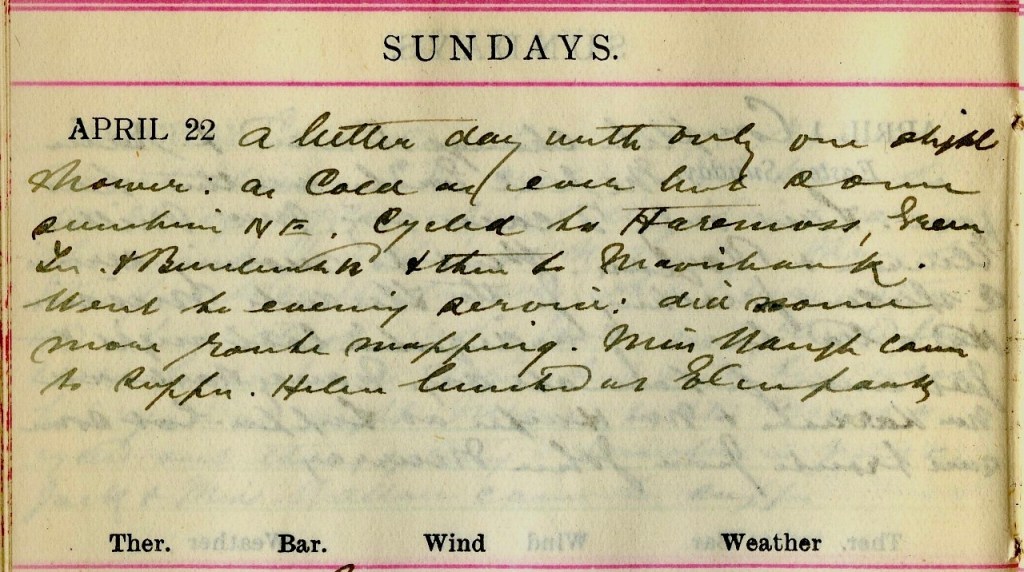 SUNDAYS.
APRIL 22 A better day with only one slight
shower: as cold as ever but some
sunshine NE. Cycled to Haremoss, Green
& then to Mavisbank.
Went to evening service: did some
more route mapping. Miss Waugh came
to supper. Helen lunched at
Ther. Bar. Wind Weather